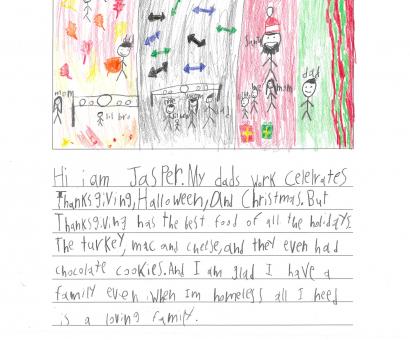 Santa
me
mom
dad
mom
lil bro
dad
Hi i am Jasper. My dads work celebrates
Thanksgiving, Halloween, And Christmas. But
Thanksgiving has the best food of all the holidays.
The turkey, mac and cheese, and they even had
chocolate cookies. And I am glad I have a
family even when Im homeless all I need
is a loving family.